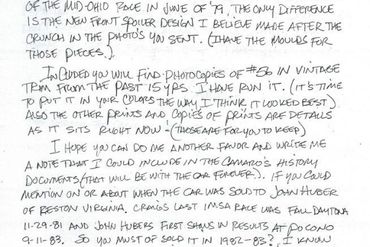 OF THE MID-OHIO RACE IN JUNE OF '79. THE ONLY DIFFERENCE
IS THE NEW FRONT SPOILER DESIGN I BELIEVE MADE AFTER THE
CRUNCH IN THE PHOTO'S YOU SENT. (I HAVE THE MOULDS FOR
THOSE PIECES.)
INCLUDED YOU WILL FIND PHOTOCOPIES OF #56 IN VINTAGE
TRIM FROM THE PAST 15 YRS I HAVE RUN IT. (IT'S TIME
TO PUT IT IN YOUR COLORS THE WAY I THINK IT LOOKED BEST)
ALSO THE OTHER PRINTS AND COPIES OF PRINTS ARE DETAILS
AS IT SITS RIGHT NOW! (THOSE ARE FOR YOU TO KEEP)
I HOPE YOU CAN DO ME ANOTHER FAVOR AND WRITE ME
A NOTE THAT I COULD INCLUDE IN THE CAMARO'S HISTORY
DOCUMENTS (THAT WILL BE WITH THE CAR FOREVER). IF YOU COULD
MENTION ON OR ABOUT WHEN THE CAR WAS SOLD TO JOHN HUBER
OF RESTON VIRGINIA. CRAIG'S LAST IMSA RACE WAS FALL DAYTONA
11-29-81 AND JOHN HUBERS FIRST SHOWS IN RESULTS AT POCONO
9-11-83. SO YOU MUST OF SOLD IT IN 1982-83?, I KNOW